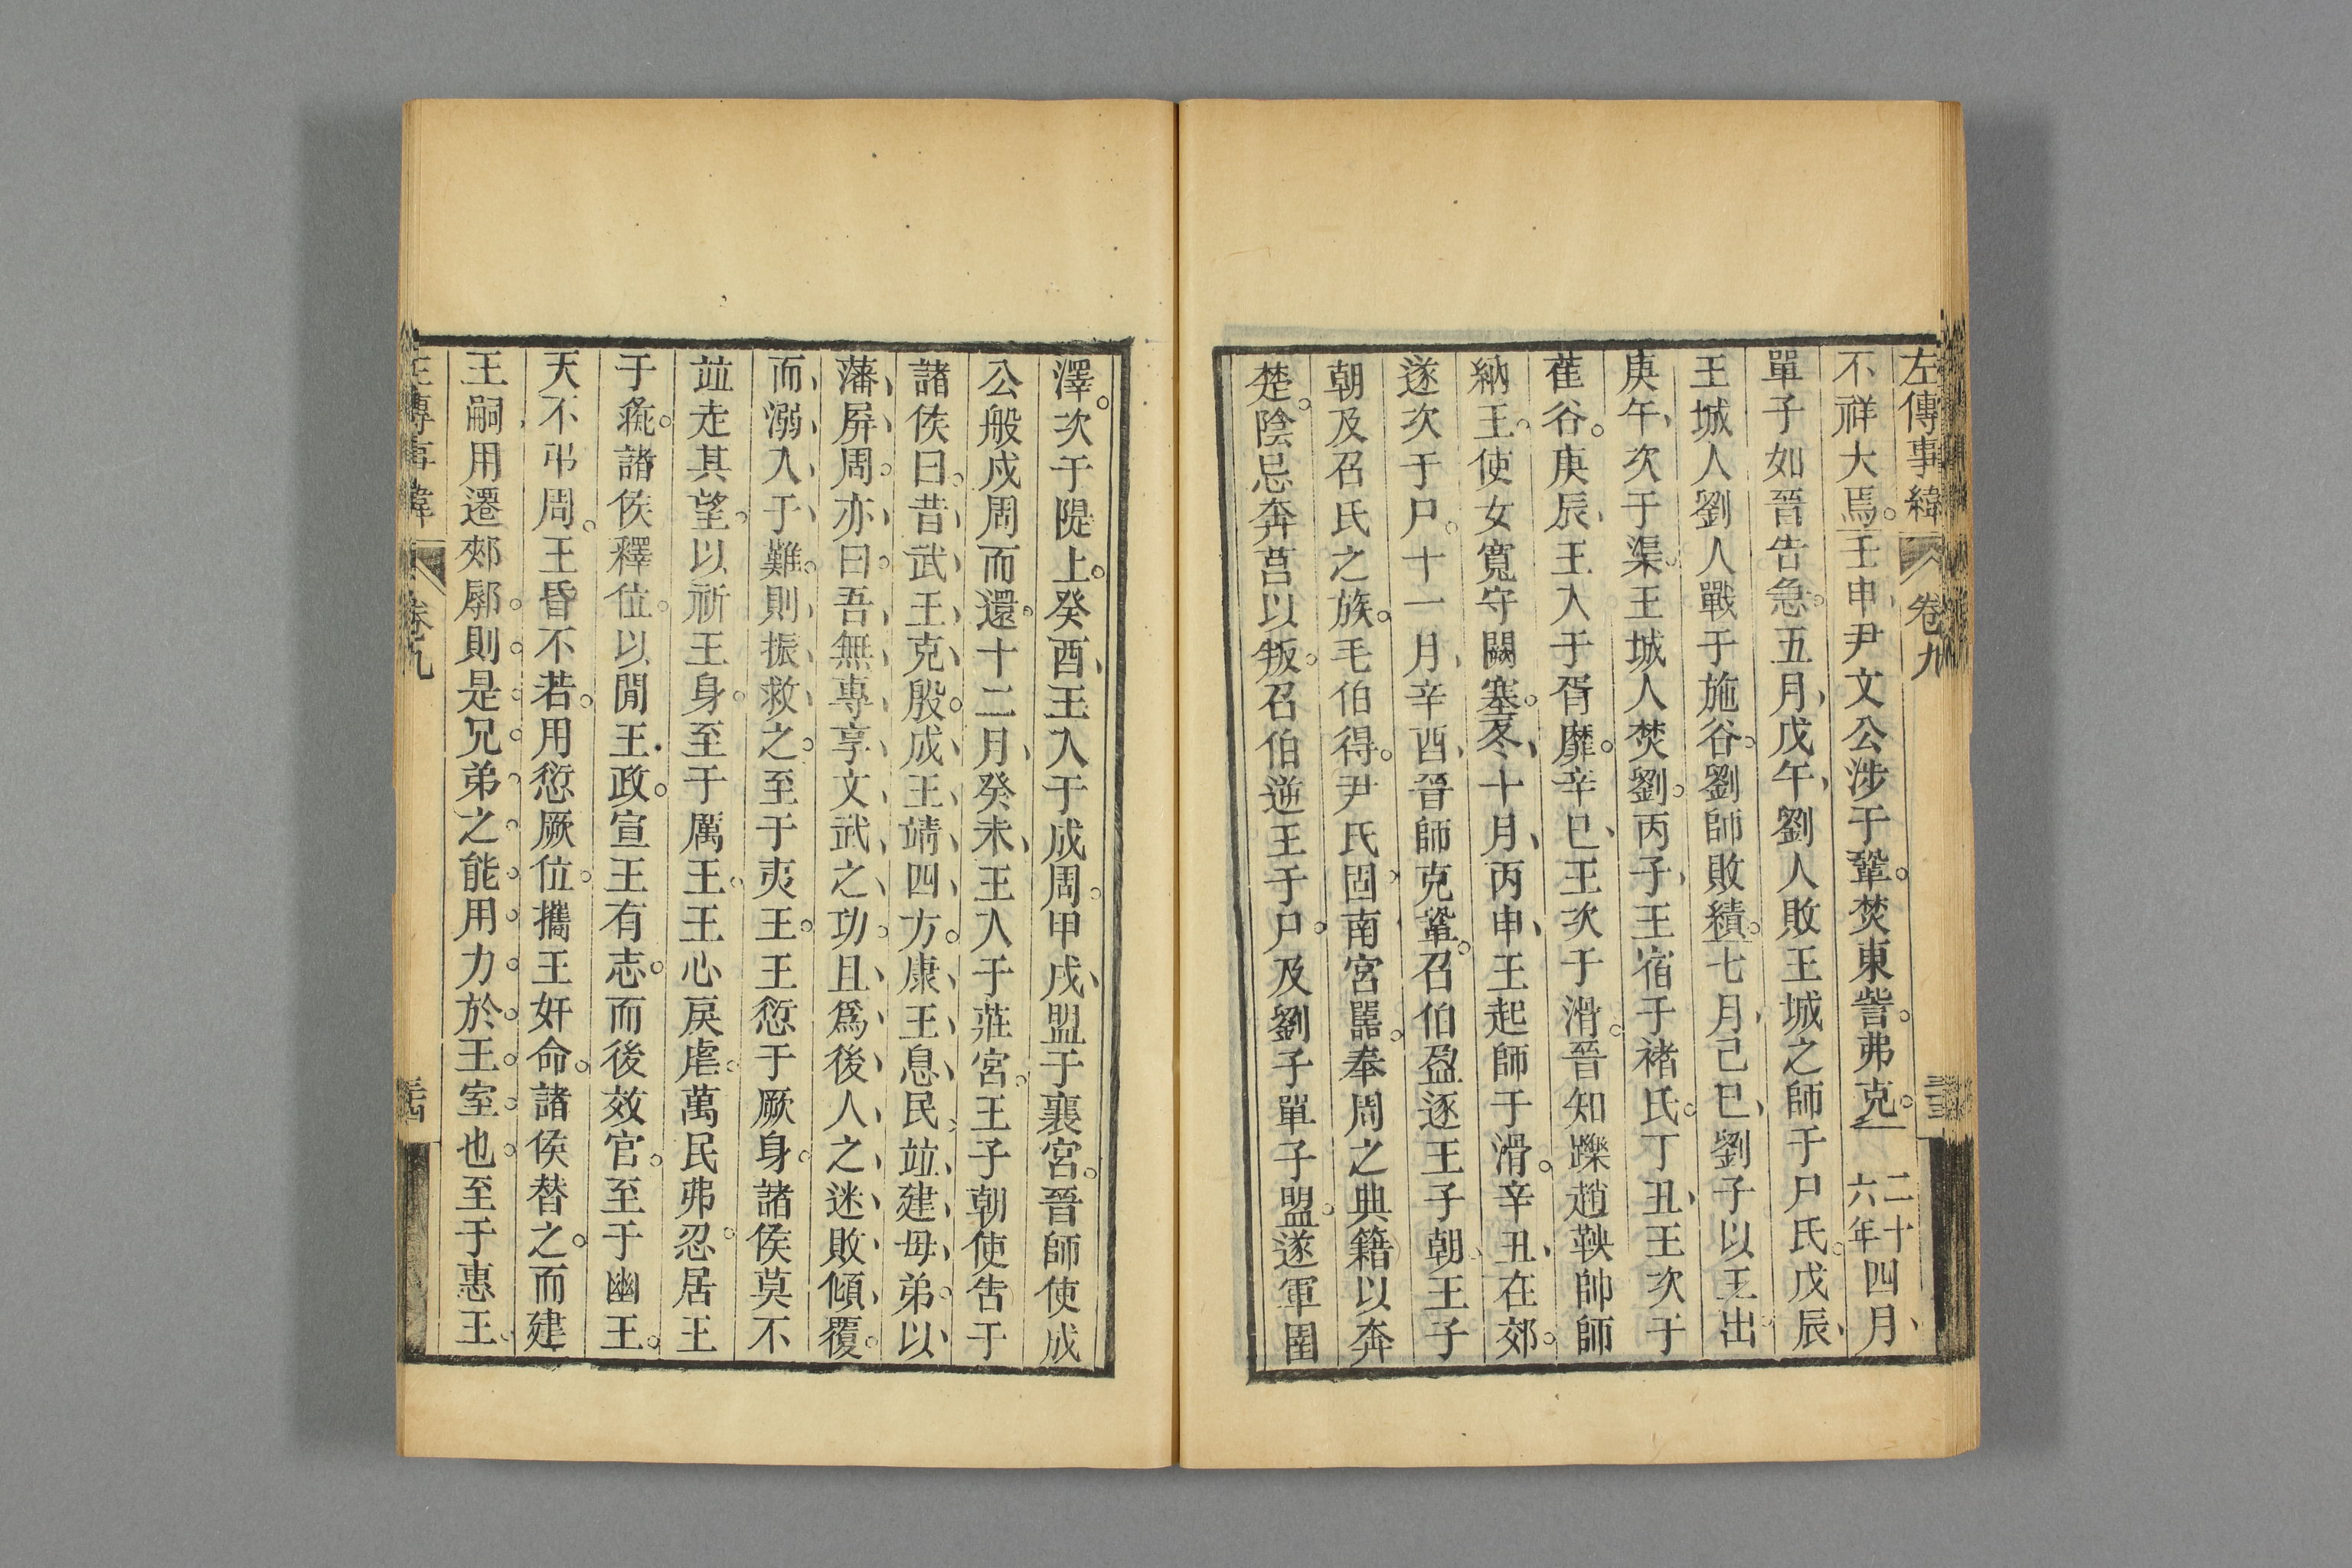 左傳事緯 卷九
不祥大焉。壬申、尹文公涉于鞏。焚東訾。弗克。二十六年四月、
單子如晉告急。五月、戊午、劉人敗王城之師于尸氏。戊辰、
王城人劉人戰于施谷。劉師敗績。七月、己巳、劉子以王出。
庚午、次于渠。王城人焚劉。丙子、王宿于褚氏。丁丑、王次于
萑谷。庚辰、王入于胥靡。辛巳、王次于滑。晉知躒趙鞅帥師
納王。使女寬守闕塞。冬、十月、丙申、王起師于滑。辛丑、在郊。
遂次于尸。十一月、辛酉、晉師克鞏。召伯盈逐王子朝、王子
朝及召氏之族。毛伯得。尹氏固、南宮嚚。奉周之典籍以奔
楚。陰忌奔莒以叛。召伯逆王于尸。及劉子單子盟。遂軍圉
澤。次于隄上。癸酉、王入于成周。甲戌、盟于襄宮。晉師使成
公般戍周而還。十二月、癸未、王入于莊宮。王子朝使告于
諸侯曰。昔、武、王、克、殷。成、王、靖、四、方。康、王、息、民、竝、建、母、弟。以、
藩、屏、周。亦、曰。吾、無、專、享、文、武、之、功。且、爲、後、人、之、迷、敗、傾、覆。
而、溺、入、于、難。則、振、救、之。至于夷王。王愆于厥身。諸侯莫不
竝走其望。以祈王身。至于厲王。王心戾虐。萬民弗忍。居王
于彘。諸侯釋位。以閒王政。宣王有志。而後效官。至于幽王。
天不弔周。王昏不若。用愆厥位。攜王奸命。諸侯替之。而建
王嗣、用遷郟鄏。則。是。兄。弟。之。能。用。力。於。王。室。也。至于惠王、
傳事緯 卷九